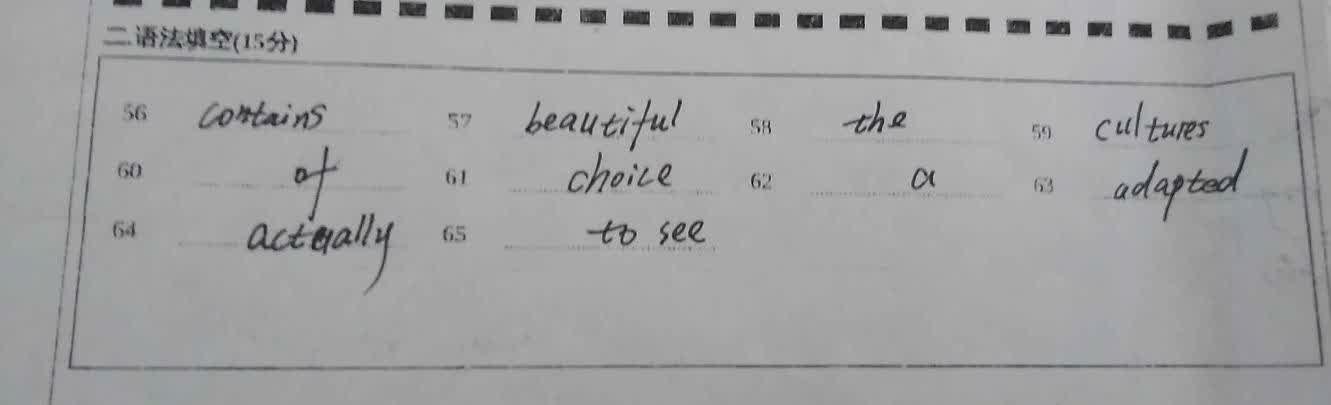 二.语法填空(15分)
56 contains 57 beautiful 58 the 59 cultures
60 of 61 choice 62 a 63 adapted
64 actually 65 to see